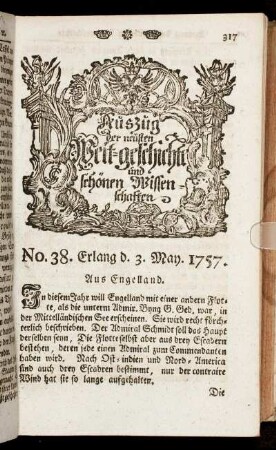 317
Auszug
der neusten
Welt-geschichte
und
schönen Wissen-
schaften
No. 38. Erlang d. 3. May. 1757.
Aus Engelland.
In diesem Jahr will Engelland mit einer andern Flot-
te, als die unterm Admir. Byng G. Ged. war, in
der Mittelländischen See erscheinen. Sie wird recht förch-
terlich beschrieben. Der Admiral Schmidt soll das Haupt
derselben seyn, Die Flotte selbst aber aus drey Escadern
bestehen, deren jede einen Admiral zum Commendanten
haben wird. Nach Ost-indien und Nord-America
sind auch drey Escadren bestimmt, nur der contraire
Wind hat sie so lange aufgehalten.
Die